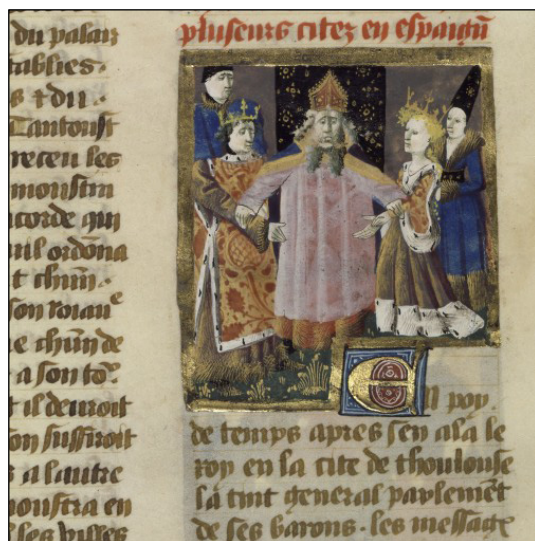 du palais
tablies.
s ⁊ du
Tantoust
receu les
monstra
corde qui
uil ordōna
t chūn
e chūn de
a son
t il deuroit
on suffiroit
s a lautre
monstra en
les villes
pluseurs citez en espaigñ
En poy
de temps apres sen ala le
roy en la cite de thoulouse
la tint general parlemēt
de ses barons. les message